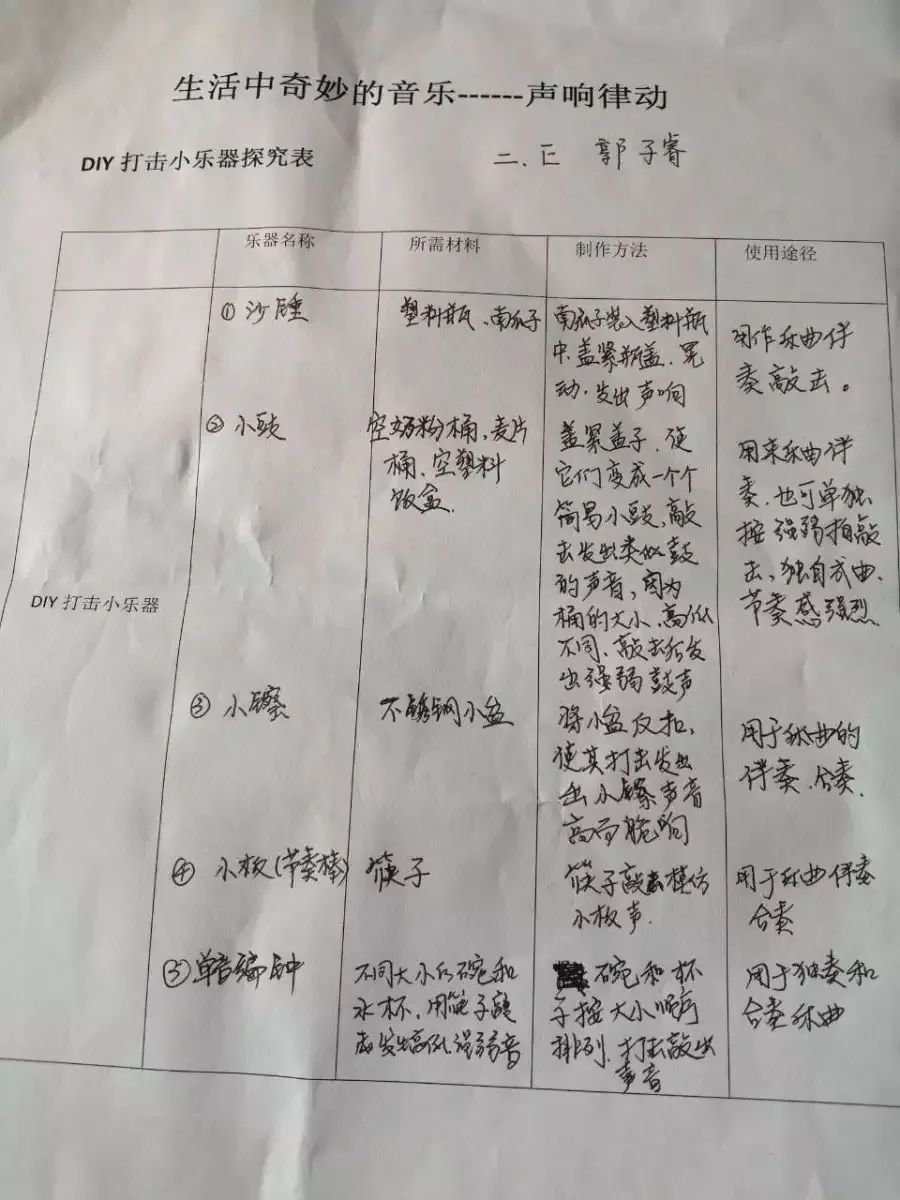 生活中奇妙的音乐------声响律动
DIY 打击小乐器探究表
二、正 郭子睿
乐器名称 所需材料 制作方法 使用途径
DIY 打击小乐器
①沙锤
塑料瓶、南瓜子
南瓜子装入塑料瓶
中、盖紧瓶盖、晃
动、发出声响
用作乐曲伴
奏敲击。
②小鼓
空奶粉桶、麦片
桶、空塑料
饭盒
盖紧盖子、使
它们变成一个个
简易小鼓,敲
击发出类似鼓
的声音,因为
桶的大小、高低
不同、敲击所发
出强弱鼓声
用来乐曲伴
奏、也可单独
按强弱拍敲
击、独自成曲、
节奏感强烈
③小镲
不锈钢小盆
将小盆反扣、
使其打击发出
出小镲声音
高而脆响
用于乐曲的
伴奏、合奏.
④小板(节奏棒)
筷子
筷子敲击模仿
小板声.
用于乐曲伴奏
合奏
⑤单音编钟
不同大小的碗和
水杯、用筷子敲
击发出高低、强弱音
碗和杯
子按大小顺序
排列、打击敲出
声音
用于独奏和
合奏乐曲